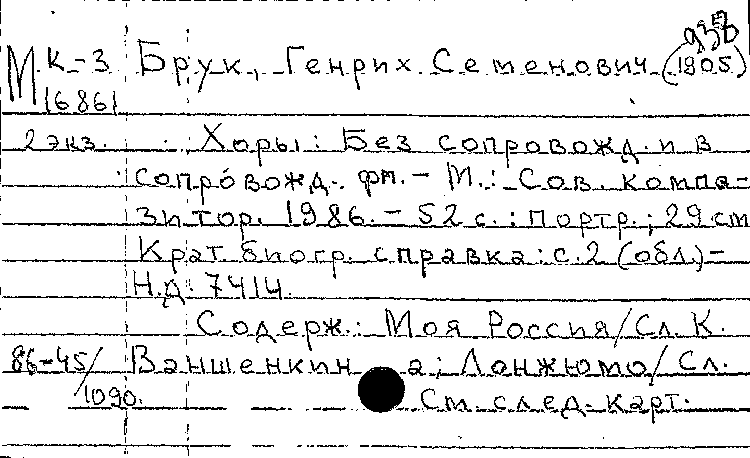 938
М К-3 Брук, Генрих Семенович (1905)
16861
2 экз. Хоры: Без сопровожд. и в
сопровожд. фп. – М.: Сов. компо=
зитор. 1986. – 52 с.: портр.; 29 см
Крат. биогр. справка: с. 2 (обл.) –
Н.Д. 7414.
Содерж.: Моя Россия / Сл. К.
86-45/ Ваншенкина; Лонжюмо / Сл.
1090. См. след. карт.